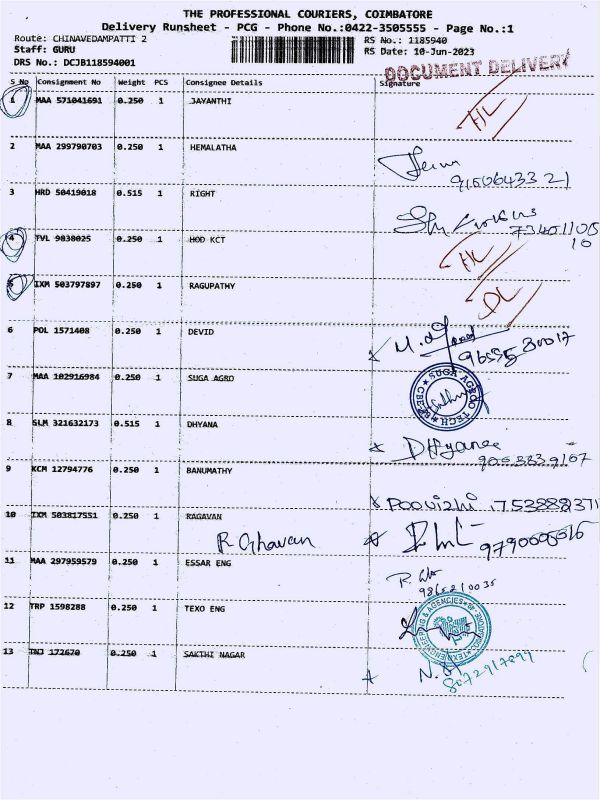 THE PROFESSIONAL COURIERS, COIMBATORE
Delivery Runsheet - PCG - Phone No.:0422-3505555 - Page No.:1
Route: CHINAVEDAMPATTI 2
RS No.: 1185940
Staff: GURU
RS Date: 10-Jun-2023
DRS No.: DCJB118594001
DOCUMENT DELIVERY
S No Consignment No Weight PCS Consignee Details Signature
1 MAA 571041691 0.250 1 JAYANTHI
2 MAA 299790703 0.250 1 HEMALATHA
3 HRD 50419018 0.515 1 RIGHT
4 TVL 9838025 0.250 1 HOD KCT
5 IXM 503797897 0.250 1 RAGUPATHY
DL
6 POL 1571408 0.250 1 DEVID
7 MAA 102916984 0.250 1 SUGA AGRO
8 SLM 321632173 0.515 1 DHYANA
DHyanee
9 KCM 12794776 0.250 1 BANUMATHY
Poovizhi
10 IXM 503817551 0.250 1 RAGAVAN
R Ghavan
11 MAA 297959579 0.250 1 ESSAR ENG
9865210035
12 TRP 1598288 0.250 1 TEXO ENG
13 INJ 172670 0.250 1 SAKTHI NAGAR
8072917899